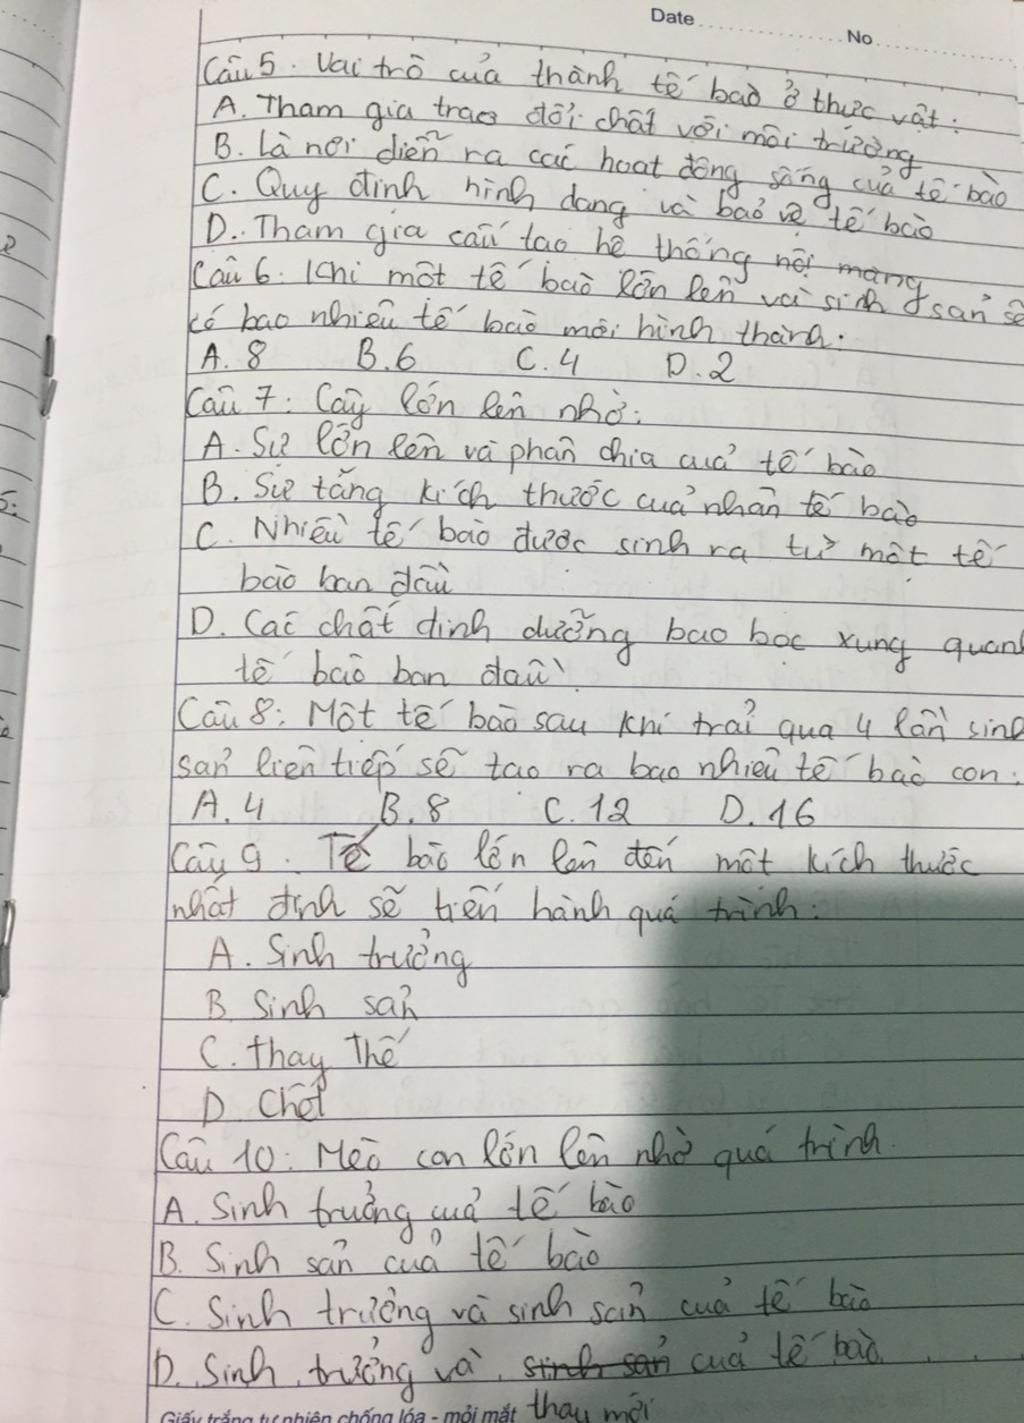 Date
No
Câu 5. Vai trò của thành tế bào ở thực vật:
A. Tham gia trao đổi chất với môi trường
B. Là nơi diễn ra các hoạt động sống của tế bào
C. Quy định hình dạng và bảo vệ tế bào
D. Tham gia cấu tạo hệ thống nội màng
Câu 6: Khi một tế bào lớn lên và sinh sản sẽ
có bao nhiêu tế bào mới hình thành:
A. 8 B. 6 C. 4 D. 2
Câu 7: Cây lớn lên nhờ:
A. Sự lớn lên và phân chia của tế bào
B. Sự tăng kích thước của nhân tế bào
C. Nhiều tế bào được sinh ra từ một tế
bào ban đầu
D. Các chất dinh dưỡng bao bọc xung quanh
tế bào ban đầu.
Câu 8: Một tế bào sau khi trải qua 4 lần sinh
sản liên tiếp sẽ tạo ra bao nhiêu tế bào con:
A. 4 B. 8 C. 12 D. 16
Câu 9. Tế bào lớn lên đến một kích thước
nhất định sẽ tiến hành quá trình:
A. Sinh trưởng
B. Sinh sản
C. Thay Thế
D. Chết
Câu 10: Mèo con lớn lên nhờ quá trình.
A. Sinh trưởng của tế bào
B. Sinh sản của tế bào
C. Sinh trưởng và sinh sản của tế bào
D. Sinh trưởng và sinh sản của tế bào
thay mới
Giấy trắng tự nhiên chống lóa - mỏi mắt